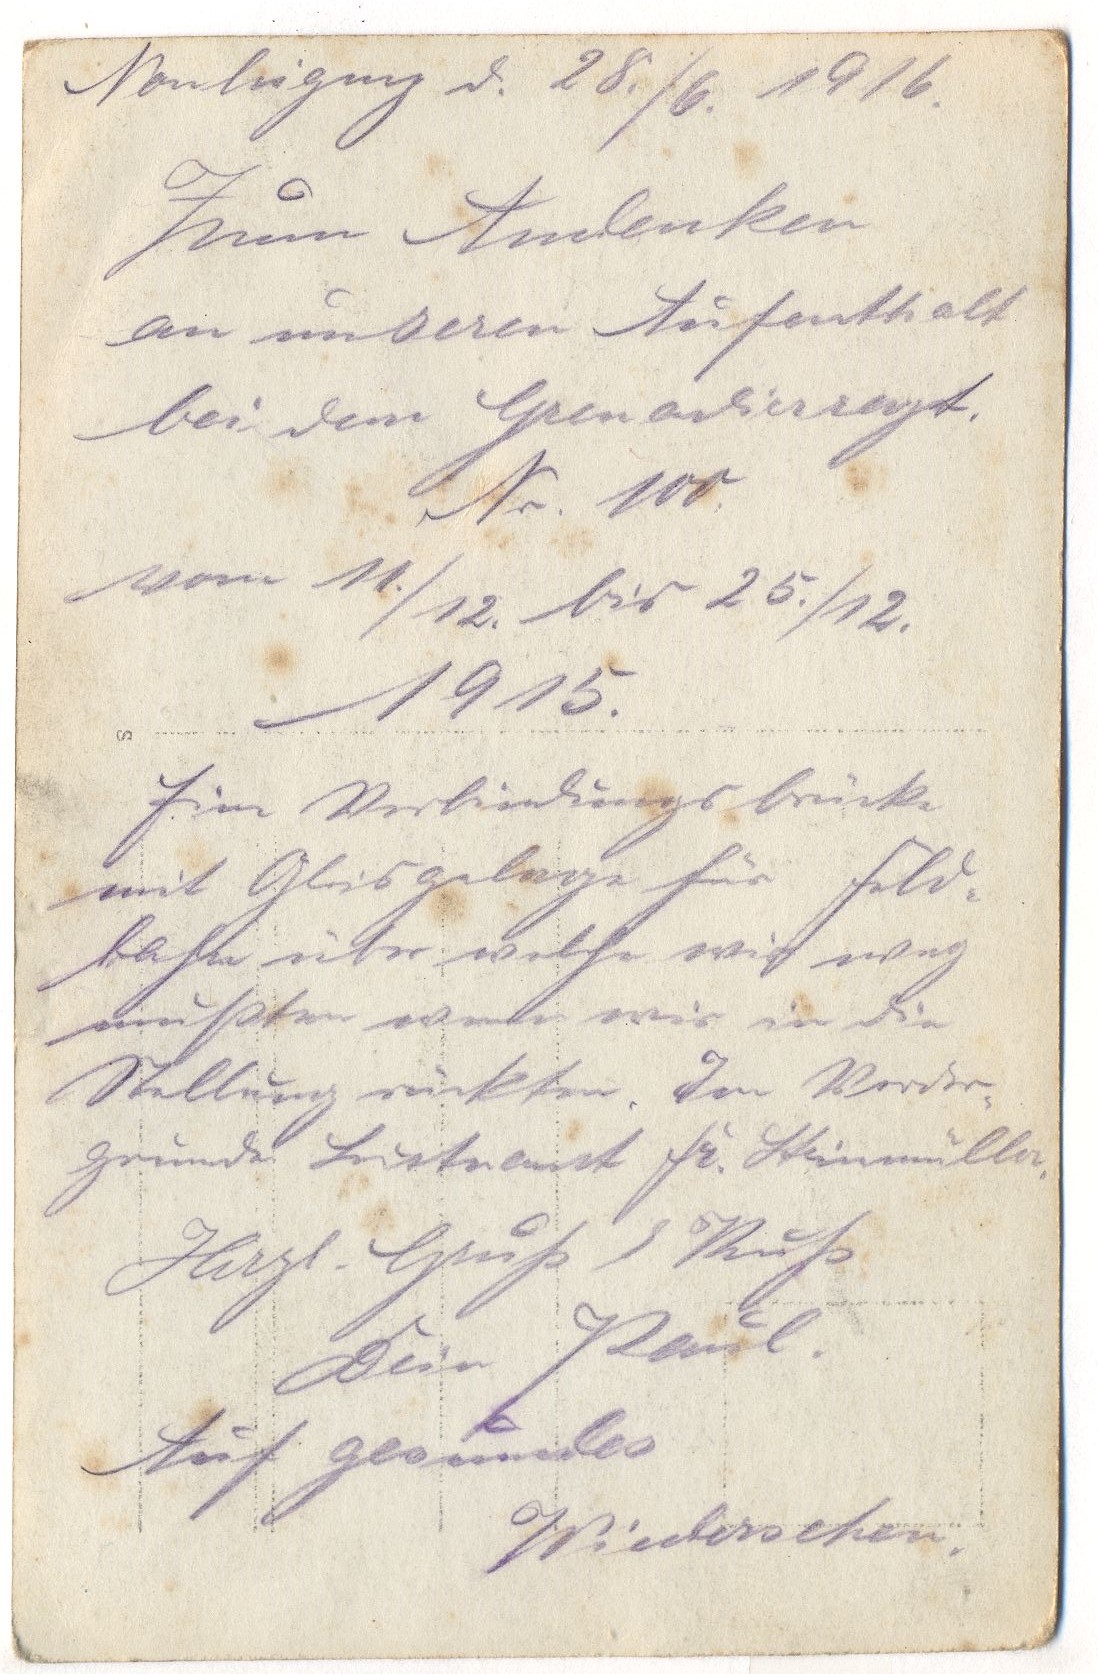 d. 28./6. 1916.
Zum Andenken
an unseren Aufenthalt
bei dem Grenadierregt.
Nr. 100.
vom 11./12. bis 25./12.
1915.
S
Eine Verbindungsbrücke
mit Gleisgelage für Feld-
bahn über welche wir weg
mußten wenn wir in die
Stellung rückten. Im Vorder-
grunde Leutnant Steinmüller.
Herzl. Gruß & Kuß
Dein Paul.
Auf gesundes
Wiedersehen.